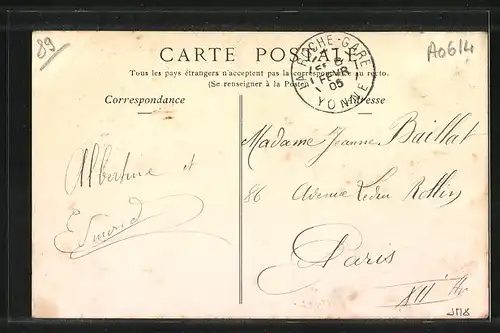 89
A0614
CARTE POSTALE
Tous les pays étrangers n'acceptent pas la correspondance au recto.
(Se renseigner à la Poste)
LAROCHE-GARE
FEVR
05
YONNE
Correspondance
Adresse
Albertine et
Madame Jeanne Baillat
86 Avenue Ledru Rollin
Paris
XII